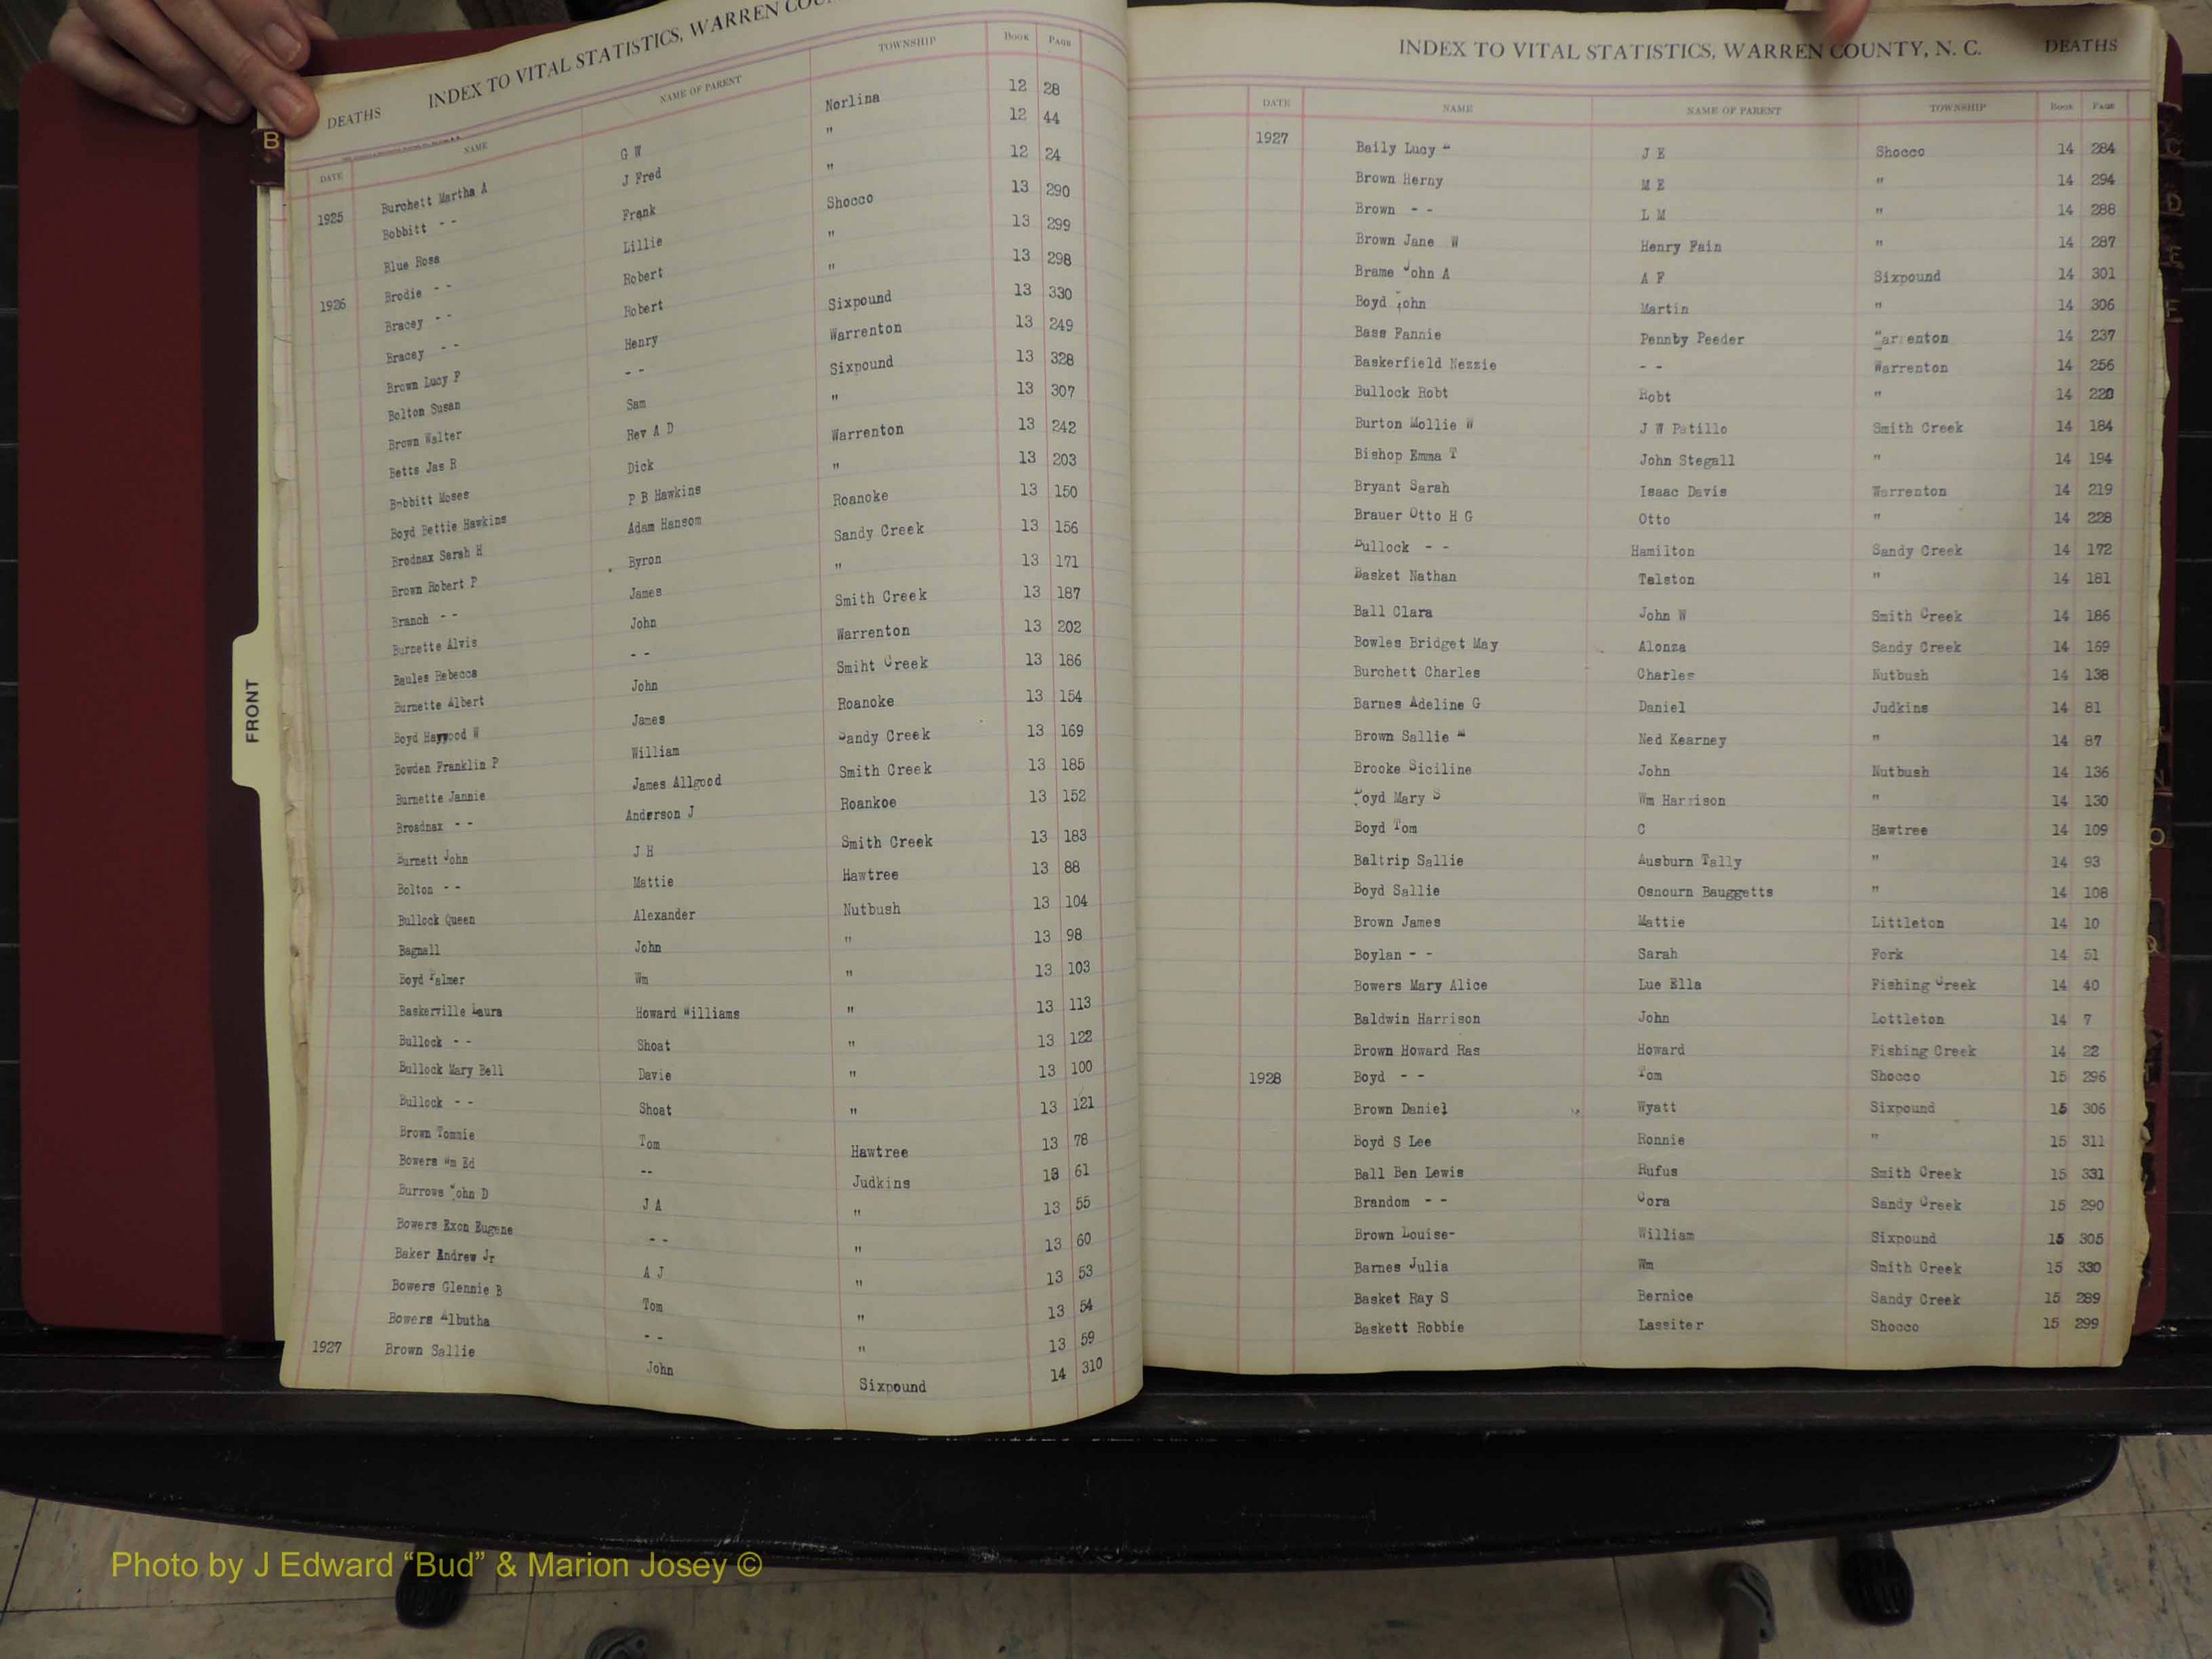 DEATHS INDEX TO VITAL STATISTICS, WARREN COUN
DATE NAME NAME OF PARENT TOWNSHIP BOOK PAGE
1925 Burchett Martha A G W Norlina 12 28
Bobbitt - - J Fred " 12 44
Blue Rosa Frank " 12 24
1926 Brodie - - Lillie Shocco 13 290
Bracey - - Robert " 13 299
Bracey - - Robert " 13 298
Brown Lucy F Henry Sixpound 13 330
Bolton Susan - - Warrenton 13 249
Brown Walter Sam Sixpound 13 328
Betts Jas R Rev A D " 13 307
Bobbitt Moses Dick Warrenton 13 242
Boyd Bettie Hawkins P B Hawkins " 13 203
Brodnax Sarah H Adam Hansom Roanoke 13 150
Brown Robert P Byron Sandy Creek 13 156
Branch - - James " 13 171
Burnette Alvis John Smith Creek 13 187
Baules Rebecca - - Warrenton 13 202
Burnette Albert John Smiht Creek 13 186
Boyd Haywood W James Roanoke 13 154
Bowden Franklin P William Sandy Creek 13 169
Burnette Jannie James Allgood Smith Creek 13 185
Broadnax - - Anderson J Roankoe 13 152
Burnett John J H Smith Creek 13 183
Bolton - - Mattie Hawtree 13 88
Bullock Queen Alexander Nutbush 13 104
Bagnall John " 13 98
Boyd Palmer Wm " 13 103
Baskerville Laura Howard Williams " 13 113
Bullock - - Shoat " 13 122
Bullock Mary Bell Davie " 13 100
Bullock - - Shoat " 13 121
Brown Tommie Tom Hawtree 13 78
Bowers Wm Ed -- Judkins 13 61
Burrows John D J A " 13 55
Bowers Exon Eugene - - " 13 60
Baker Andrew Jr A J " 13 53
Bowers Glennie B Tom " 13 54
Bowers Albutha - - " 13 59
1927 Brown Sallie John Sixpound 14 310
INDEX TO VITAL STATISTICS, WARREN COUNTY, N. C. DEATHS
DATE NAME NAME OF PARENT TOWNSHIP BOOK PAGE
1927 Baily Lucy J E Shocco 14 284
Brown Herny M E " 14 294
Brown - - L M " 14 288
Brown Jane W Henry Fain " 14 287
Brame John A A F Sixpound 14 301
Boyd John Martin " 306
Bass Fannie Pennby Peeder Warrenton 14 237
Baskerfield Nezzie - - Warrenton 14 256
Bullock Robt Robt " 14 220
Burton Mollie W J W Patillo Smith Creek 14 184
Bishop Emma T John Stegall " 14 194
Bryant Sarah Isaac Davis Warrenton 14 219
Brauer Otto H G Otto " 14 228
Bullock - - Hamilton Sandy Creek 14 172
Basket Nathan Telston " 14 181
Ball Clara John W Smith Creek 14 186
Bowles Bridget May Alonza Sandy Creek 14 169
Burchett Charles Charles Nutbush 14 138
Barnes Adeline G Daniel Judkins 14 81
Brown Sallie Ned Kearney " 14 87
Brooke Siciline John Nutbush 14 136
Boyd Mary S Wm Harrison " 14 130
Boyd Tom C Hawtree 14 109
Baltrip Sallie Ausburn Tally " 14 93
Boyd Sallie Osnourn Bauggetts " 14 108
Brown James Mattie Littleton 14 10
Boylan - - Sarah Fork 14 51
Bowers Mary Alice Lue Ella Fishing Creek 14 40
Baldwin Harrison John Lottleton 14 7
Brown Howard Ras Howard Fishing Creek 14 22
1928 Boyd - - Tom Shocco 15 296
Brown Daniel Wyatt Sixpound 15 306
Boyd S Lee Ronnie " 15 311
Ball Ben Lewis Rufus Smith Creek 15 331
Brandom - - Cora Sandy Creek 15 290
Brown Louise- William Sixpound 15 305
Barnes Julia Wm Smith Creek 15 330
Basket Ray S Bernice Sandy Creek 15 289
Baskett Robbie Lassiter Shocco 15 299
B
FRONT
Photo by J Edward “Bud” & Marion Josey ©